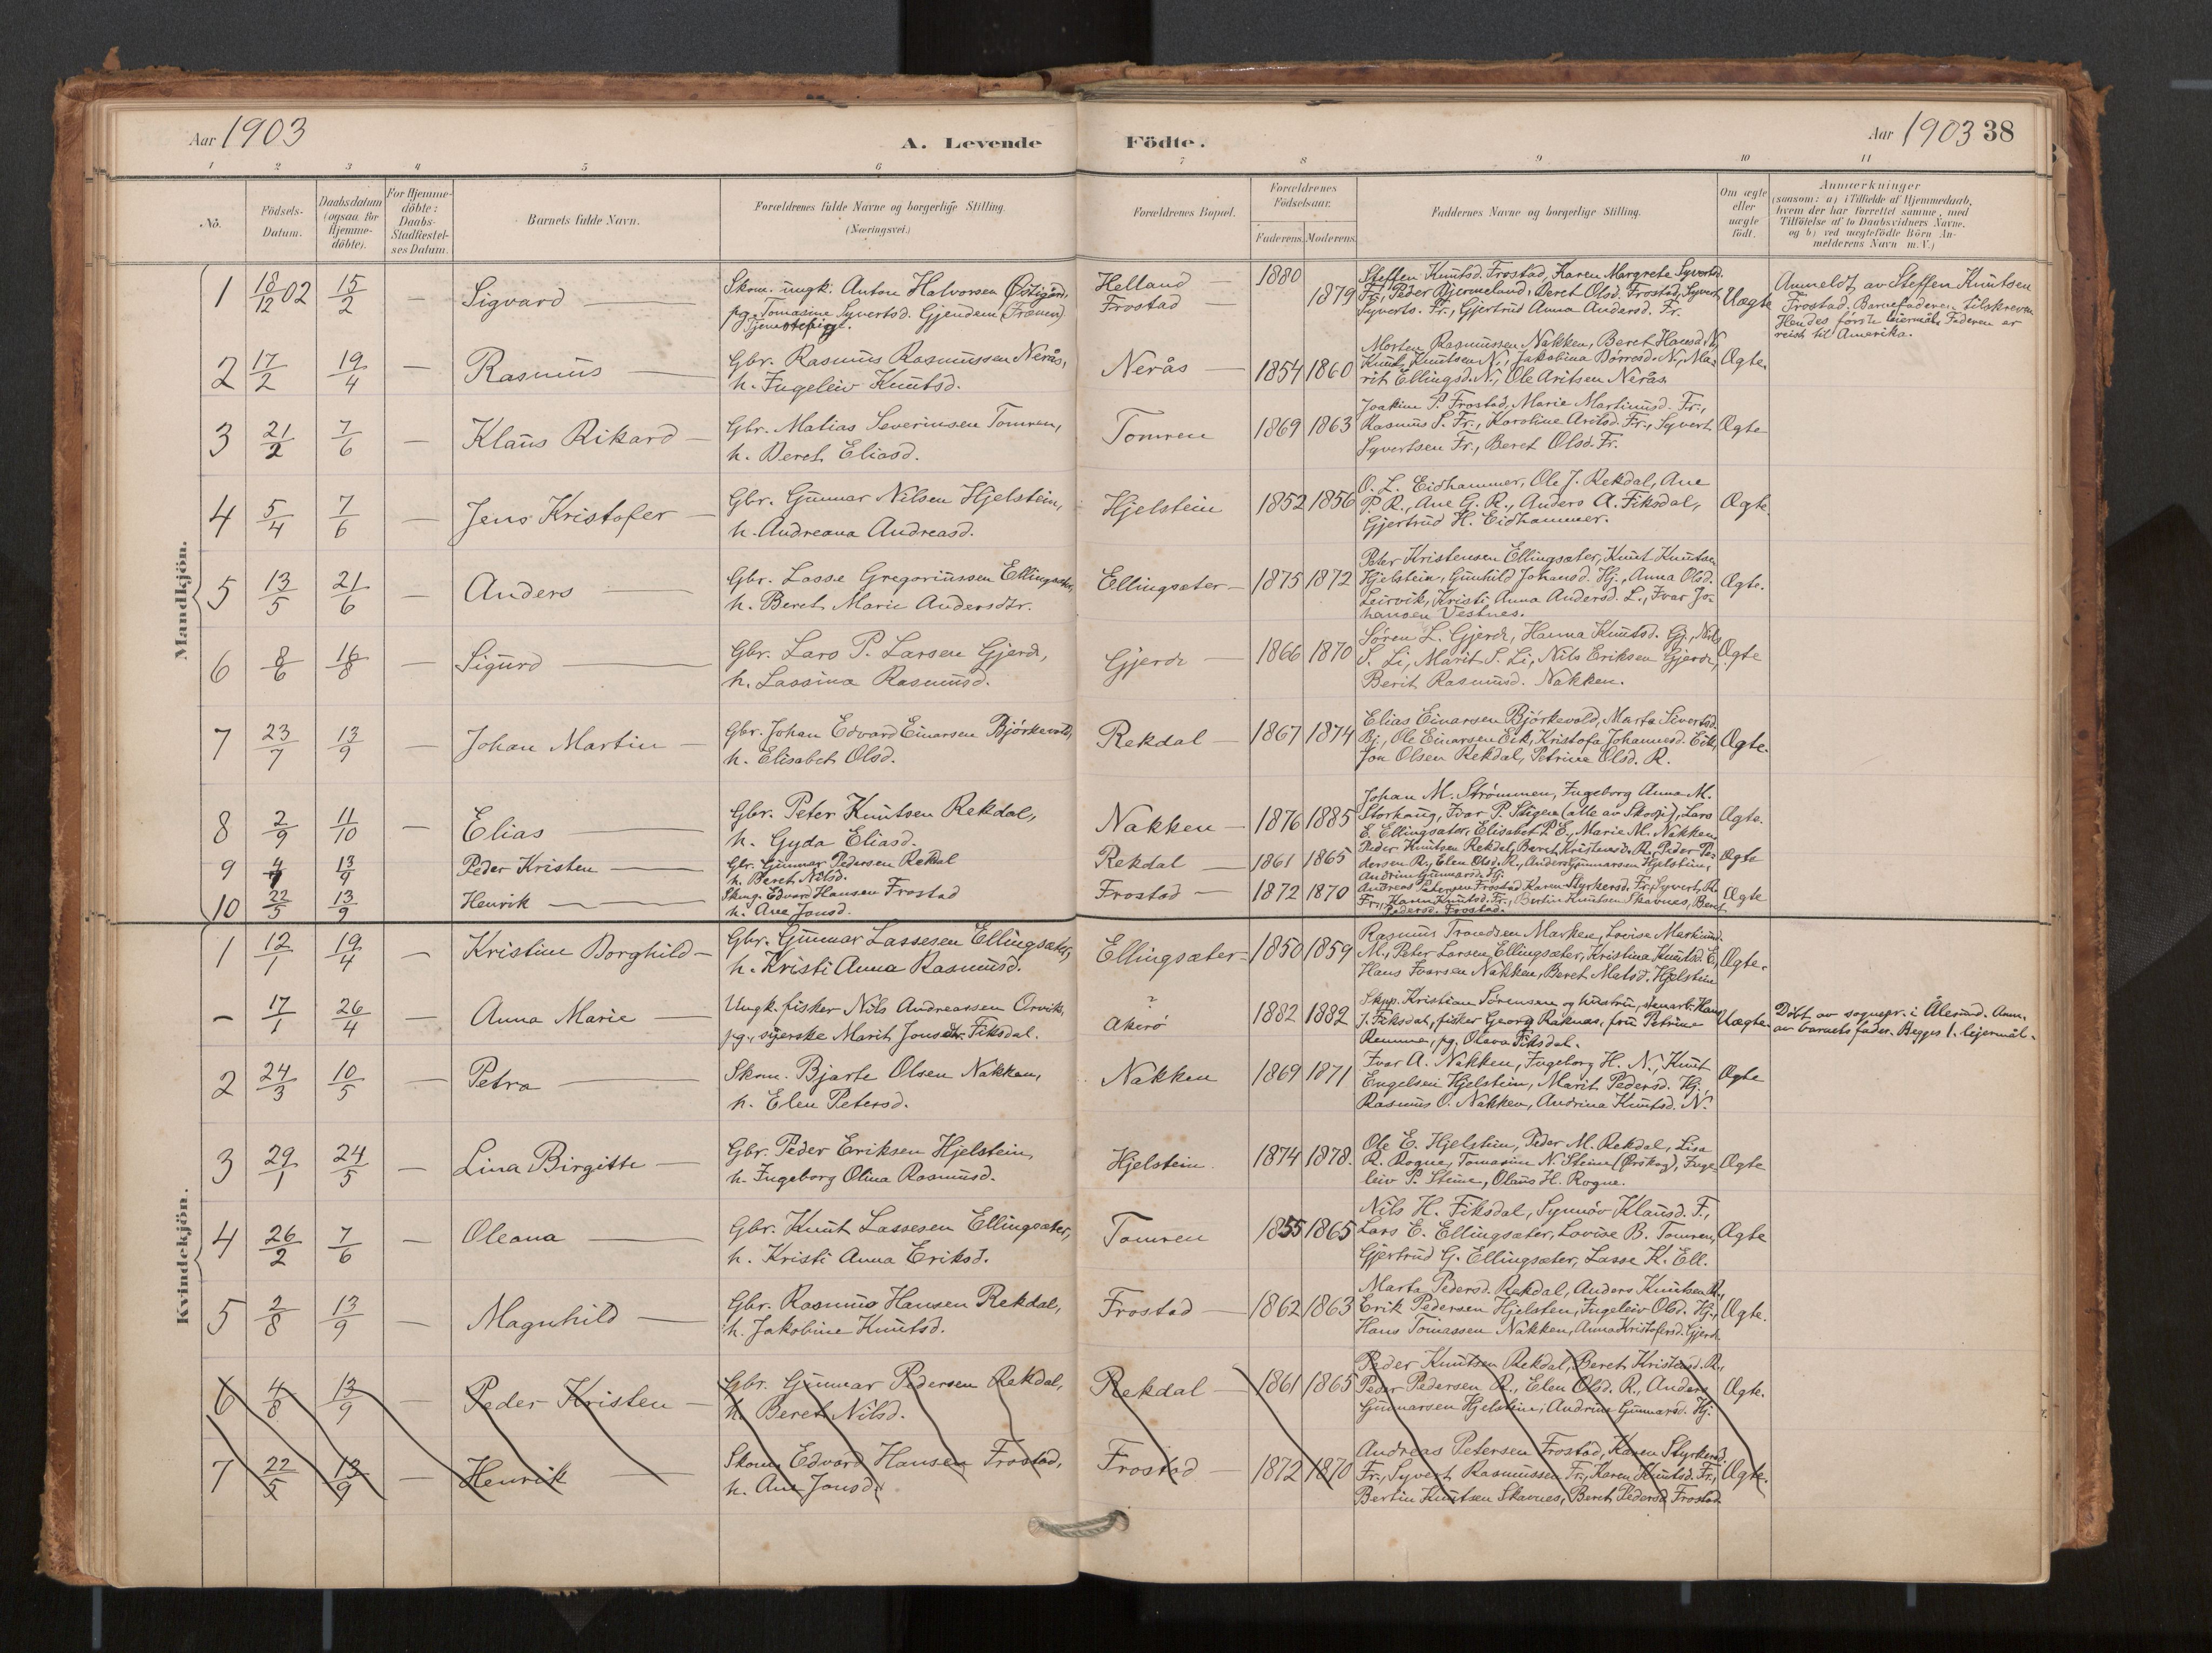 Aar 1903
A. Levende Födte.
Aar 1903 38
1 2 3 4 5 6 7 8 9 10 11
No.
Födsels-Datum.
Daabsdatum (ogsaa for Hjemme-döbte).
For Hjemme-döbte: Daabs-Stadfæstel-ses Datum.
Barnets fulde Navn.
Forældrenes fulde Navne og borgerlige Stilling. (Næringsvei.)
Forældrenes Bopæl.
Forældrenes Födselsaar.
Faderens. Moderens.
Faddernes Navne og borgerlige Stilling.
Om ægte eller uægte födt.
Anmærkninger
(saasom: a) i Tilfælde af Hjemmedaab,
hvem der har forrettet samme, med
Tilföielse af to Daabsvidners Navne.
og b) ved uægtefödte Börn An-
melderens Navn m. V.)
Mandkjön.
1 18/12 02 15/2 — Sigvard —
Skom. ungk. Anton Halvorsen Östigård,
pg. Tomasine Syvertsd. Gjendem (Frænen)
Tjenestepige.
Helland —
Frostad —
1880
1879
Steffen Knutsd. Frostad, Karen Margrete Syvertsd.
Fr., Peder Bjermeland, Beret Olsd. Frostad, Syvert
Syverts. Fr., Gjertrud Anna Andersd. Fr.
Uægte
Anmeldt av Steffen Knutsen
Frostad. Barnefaderen tilskreven
Hendes første leiermål. Faderen er
reist til Amerika.
2 17/2 19/4 — Rasmus —
Gbr. Rasmus Rasmussen Nerås,
h. Ingeleiv Knutsd.
Nerås — 1854 1860
Morten Rasmussen Nakken, Beret Hansd. N.,
Knut Knutsen N., Jakobina Dørresd. N., Ma-
rit Ellingsd. N., Ole Aritsen Nerås.
Ægte.
3 21/2 7/6 — Klaus Rikard —
Gbr. Matias Severinsen Tomren,
h. Beret Eliasd.
Tomren 1869 1863
Joakim P. Frostad, Marie Martinusd. Fr.,
Rasmus S. Fr., Karoline Aritsd. Fr., Syvert
Syvertsen Fr., Beret Olsd. Fr.
Ægte
4 5/4 7/6 — Jens Kristofer —
Gbr. Gunnar Nilsen Hjelstein,
h. Andreana Andreasd.
Hjelstein 1852 1856
O. L. Eidhammer, Ole J. Rekdal, Ane
P. R., Ane G. R., Anders A. Fiksdal,
Gjertrud H. Eidhammer.
Ægte.
5 13/5 21/6 — Anders —
Gbr. Lasse Gregoriussen Ellingsæter,
h. Beret Marie Andersdtr.
Ellingsæter — 1875 1872
Peter Kristensen Ellingsæter, Knut Knutsen
Hjelstein, Gunhild Johansd. Hj., Anna Olsd.
Leirvik, Kristi Anna Andersd. L., Ivar Jo-
hansen Vestnes.
Ægte.
6 8/6 16/8 — Sigurd —
Gbr. Lars P. Larsen Gjerde,
h. Lassina Rasmusd.
Gjerde — 1866 1870
Søren L. Gjerde, Hanna Knutsd. Gj., Nils
S. Li, Marit S. Li, Nils Eriksen Gjerde,
Berit Rasmusd. Nakken.
Ægte
7 23/7 13/9 — Johan Martin —
Gbr. Johan Edvard Einarsen Bjørkevold,
h. Elisabet Olsd.
Rekdal — 1867 1874
Elias Einarsen Bjørkevold, Marta Sivertsd.
Bj., Ole Einarsen Eik, Kristofa Johannsd. Eik,
Jon Olsen Rekdal, Petrine Olsd. R.
Ægte.
8 2/9 11/10 — Elias —
Gbr. Peter Knutsen Rekdal,
h. Gyda Eliasd.
Nakken — 1876 1885
Johan M. Strømmen, Ingeborg Anna M.
Storhaug, Ivar P. Stigen (alle av Skodje), Lars
E. Ellingsæter, Elisabet P. E., Marie M. Nakken
Ægte.
9 4/ 13/9 — Peder Kristen —
Gbr. Gunnar Pedersen Rekdal
h. Beret Nilsd.
Rekdal — 1861 1865
Peder Knutsen Rekdal, Beret Kristensd. R., Peder Pe-
dersen R., Elen Olsd. R., Anders Gunnarsen Hjelstein,
Andrine Gunnarsd. Hj.
Ægte
10 22/5 13/9 — Henrik —
Skmg. Edvard Hansen Frostad
h. Ane Jonsd.
Frostad — 1872 1870
Andreas Petersen Frostad, Karen Styrkersd. Fr., Syvert R.
Fr., Karen Knutsd. Fr., Bertin Knutsen Skavnes, Beret
Pedersd. Frostad.
Ægte
Kvindekjön.
1 12/1 19/4 — Kristine Borghild —
Gbr. Gunnar Lassesen Ellingsæter,
h. Kristi Anna Rasmusd.
Ellingsæter — 1850 1859
Rasmus Trondsen Marken, Lovise Martinusd.
M., Peter Larsen Ellingsæter, Kristina Knutsd. E.,
Hans Ivarsen Nakken, Beret Matsd. Hjelstein
Ægte.
— 17/1 26/4 — Anna Marie —
Ungk. fisker Nils Andreassen Orvik,
pg., syerske Marit Jonsdtr. Fiksdal.
?
Akerö 1882 1882
Skpp. Kristian Sørensen og hustru, stenarb. Hans
J. Fiksdal, fisker Georg Raknas, fru Petrine
Remme, pg. Olava Fiksdal.
Uægte.
Döbt av sognepr. i Ålesund. Anm.
av barnets fader. Begges 1. leiermål.
2 24/3 10/5 — Petra —
Skom. Bjarte Olsen Nakken,
h. Elen Petersd.
Nakken 1869 1871
Ivar A. Nakken, Ingeborg H. N., Knut
Engelsen Hjelstein, Marit Pedersd. Hj.,
Rasmus O. Nakken, Andrina Knutsd. N.
Ægte
3 29/1 24/5 — Lina Birgitte —
Gbr. Peder Eriksen Hjelstein,
h. Ingeborg Olina Rasmusd.
Hjelstein 1874 1878.
Ole E. Hjelstein, Peder M. Rekdal, Lisa
R. Rogne, Tomasine N. Steine (Ørskog), Inge
leiv P. Steine, Olaus H. Rogne.
Ægte
4 26/2 7/6 — Oleana —
Gbr. Knut Lassesen Ellingsæter,
h. Kristi Anna Eriksd.
Tomren 1855 1865
Nils H. Fiksdal, Synnöv Klausd. F.,
Lars E. Ellingsæter, Lovise B. Tomren,
Gjertrud G. Ellingsæter, Lasse K. Ell.
Ægte
5 2/8 13/9 — Magnhild —
Gbr. Rasmus Hansen Rekdal,
h. Jakobine Knutsd.
Frostad — 1862 1863
Marta Pedersd. Rekdal, Anders Knutsen R.,
Erik Pedersen Hjelsten, Ingeleiv Olsd. Hj.,
Hans Tomassen Nakken, Anna Kristofersd. Gjerde
Ægte.
6 4/8 13/9 — Peder Kristen —
Gbr. Gunnar Pedersen Rekdal,
h. Beret Nilsd.
Rekdal — 1861 1865
Peder Knutsen Rekdal, Beret Kristensd. R.,
Peder Pedersen R., Elen Olsd. R., Anders
Gunnarsen Hjelstein, Andrine Gunnarsd. Hj.
Ægte.
7 22/5 13/9 — Henrik —
Skom. Edvard Hansen Frostad,
h. Ane Jonsd.
Frostad — 1872 1870
Andreas Petersen Frostad, Karen Styrkersd.
Fr., Syvert Rasmussen Fr., Karen Knutsd. Fr.,
Bertin Knutsen Skavnes, Beret Pedersd. Frostad.
Ægte.